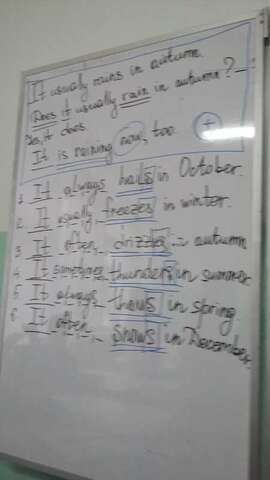 It usually rains in autumn.
Does it usually rain in autumn?
Yes, it does.
It is raining now, too. +
1. It always hails in October.
2. It usually freezes in winter.
3. It often drizzles in autumn
4. It sometimes thunders in summer
5. It always thaws in spring.
6. It often snows in December.